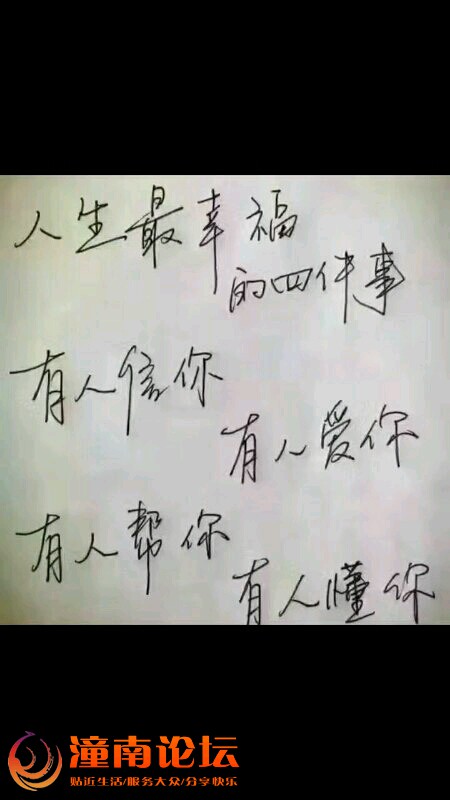 人生最幸福
的四件事
有人信你
有人爱你
有人帮你
有人懂你
潼南论坛
贴近生活/服务大众/分享快乐